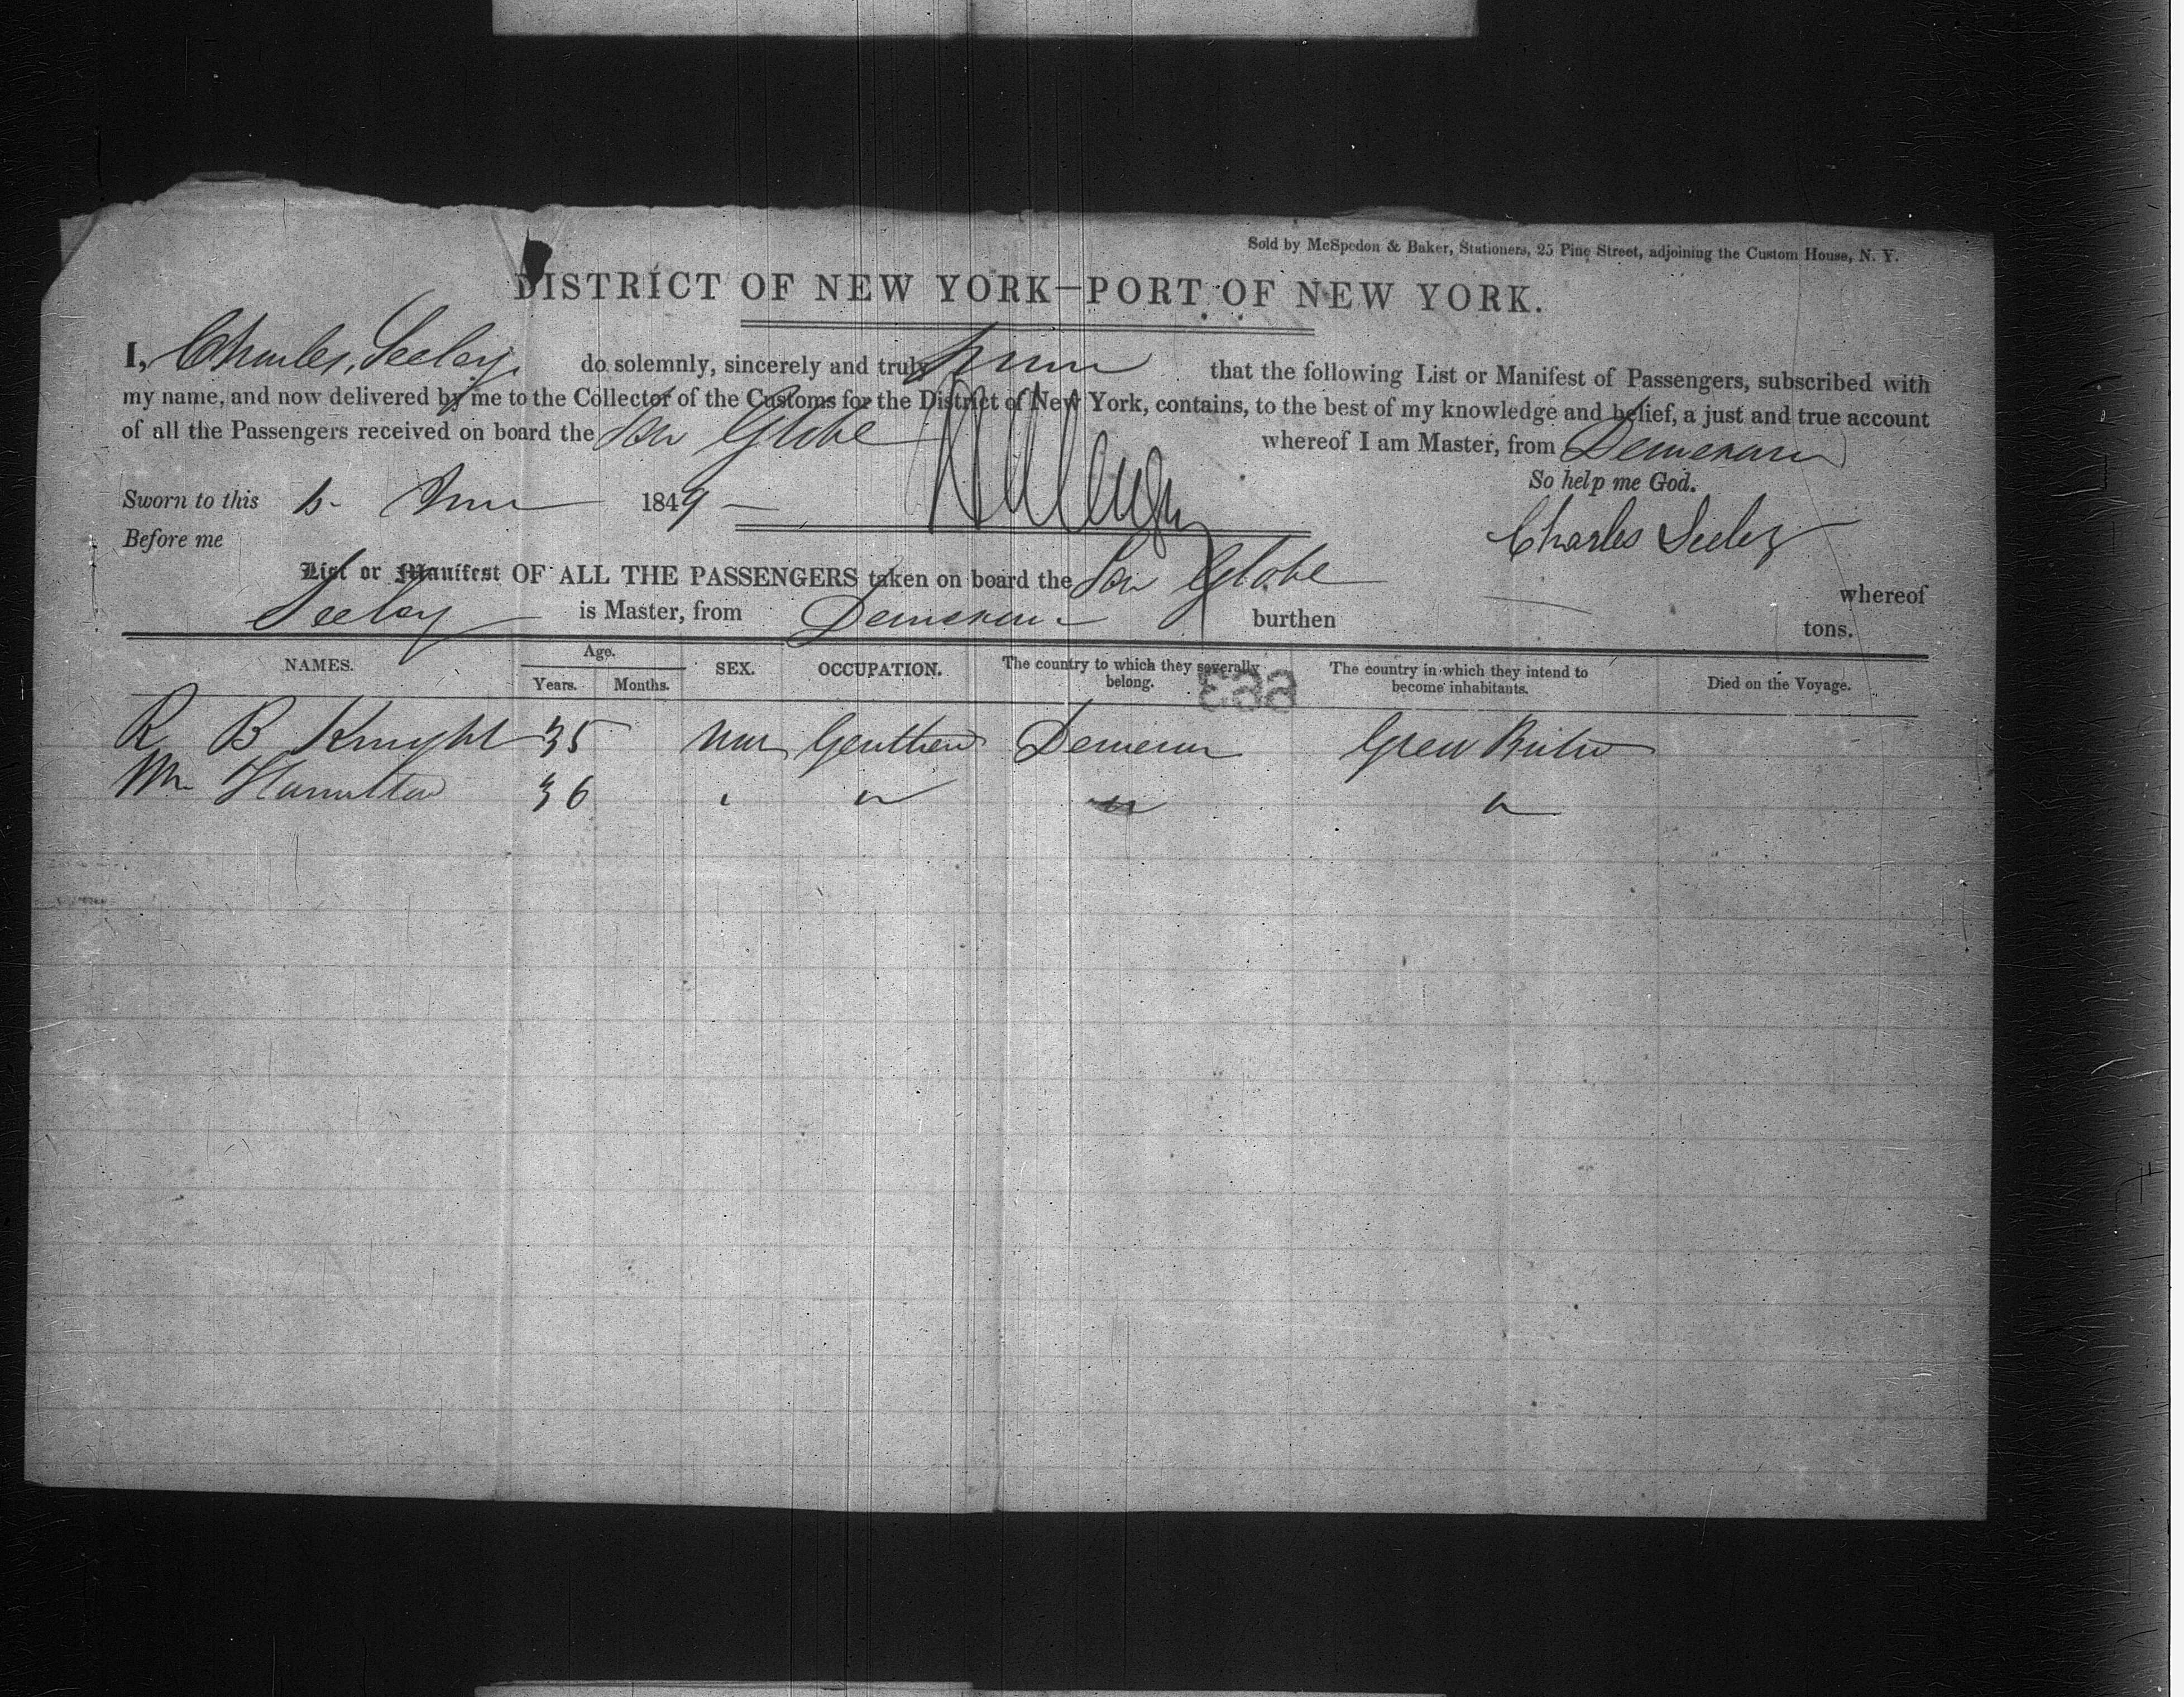 Sold by McSpedon & Baker, Stationers, 25 Pine Street, adjoining the Custom House, N. Y.
DISTRICT OF NEW YORK—PORT OF NEW YORK.
I, Charles Seeley do solemnly, sincerely and truly that the following List or Manifest of Passengers, subscribed with
my name, and now delivered by me to the Collector of the Customs for the District of New York, contains, to the best of my knowledge and belief, a just and true account
of all the Passengers received on board the Globe whereof I am Master, from Demerara
So help me God.
Sworn to this 1849
Charles Seeley
Before me
List or Manifest OF ALL THE PASSENGERS taken on board the Globe whereof
Seeley is Master, from Demerara burthen tons.
NAMES. Age. SEX. OCCUPATION. The country to which they severally belong. The country in which they intend to become inhabitants. Died on the Voyage.
Years. Months.
663
R B Knight 35 Gentleman Demerara Great Britain
Mr Hamilton 36 " " " "